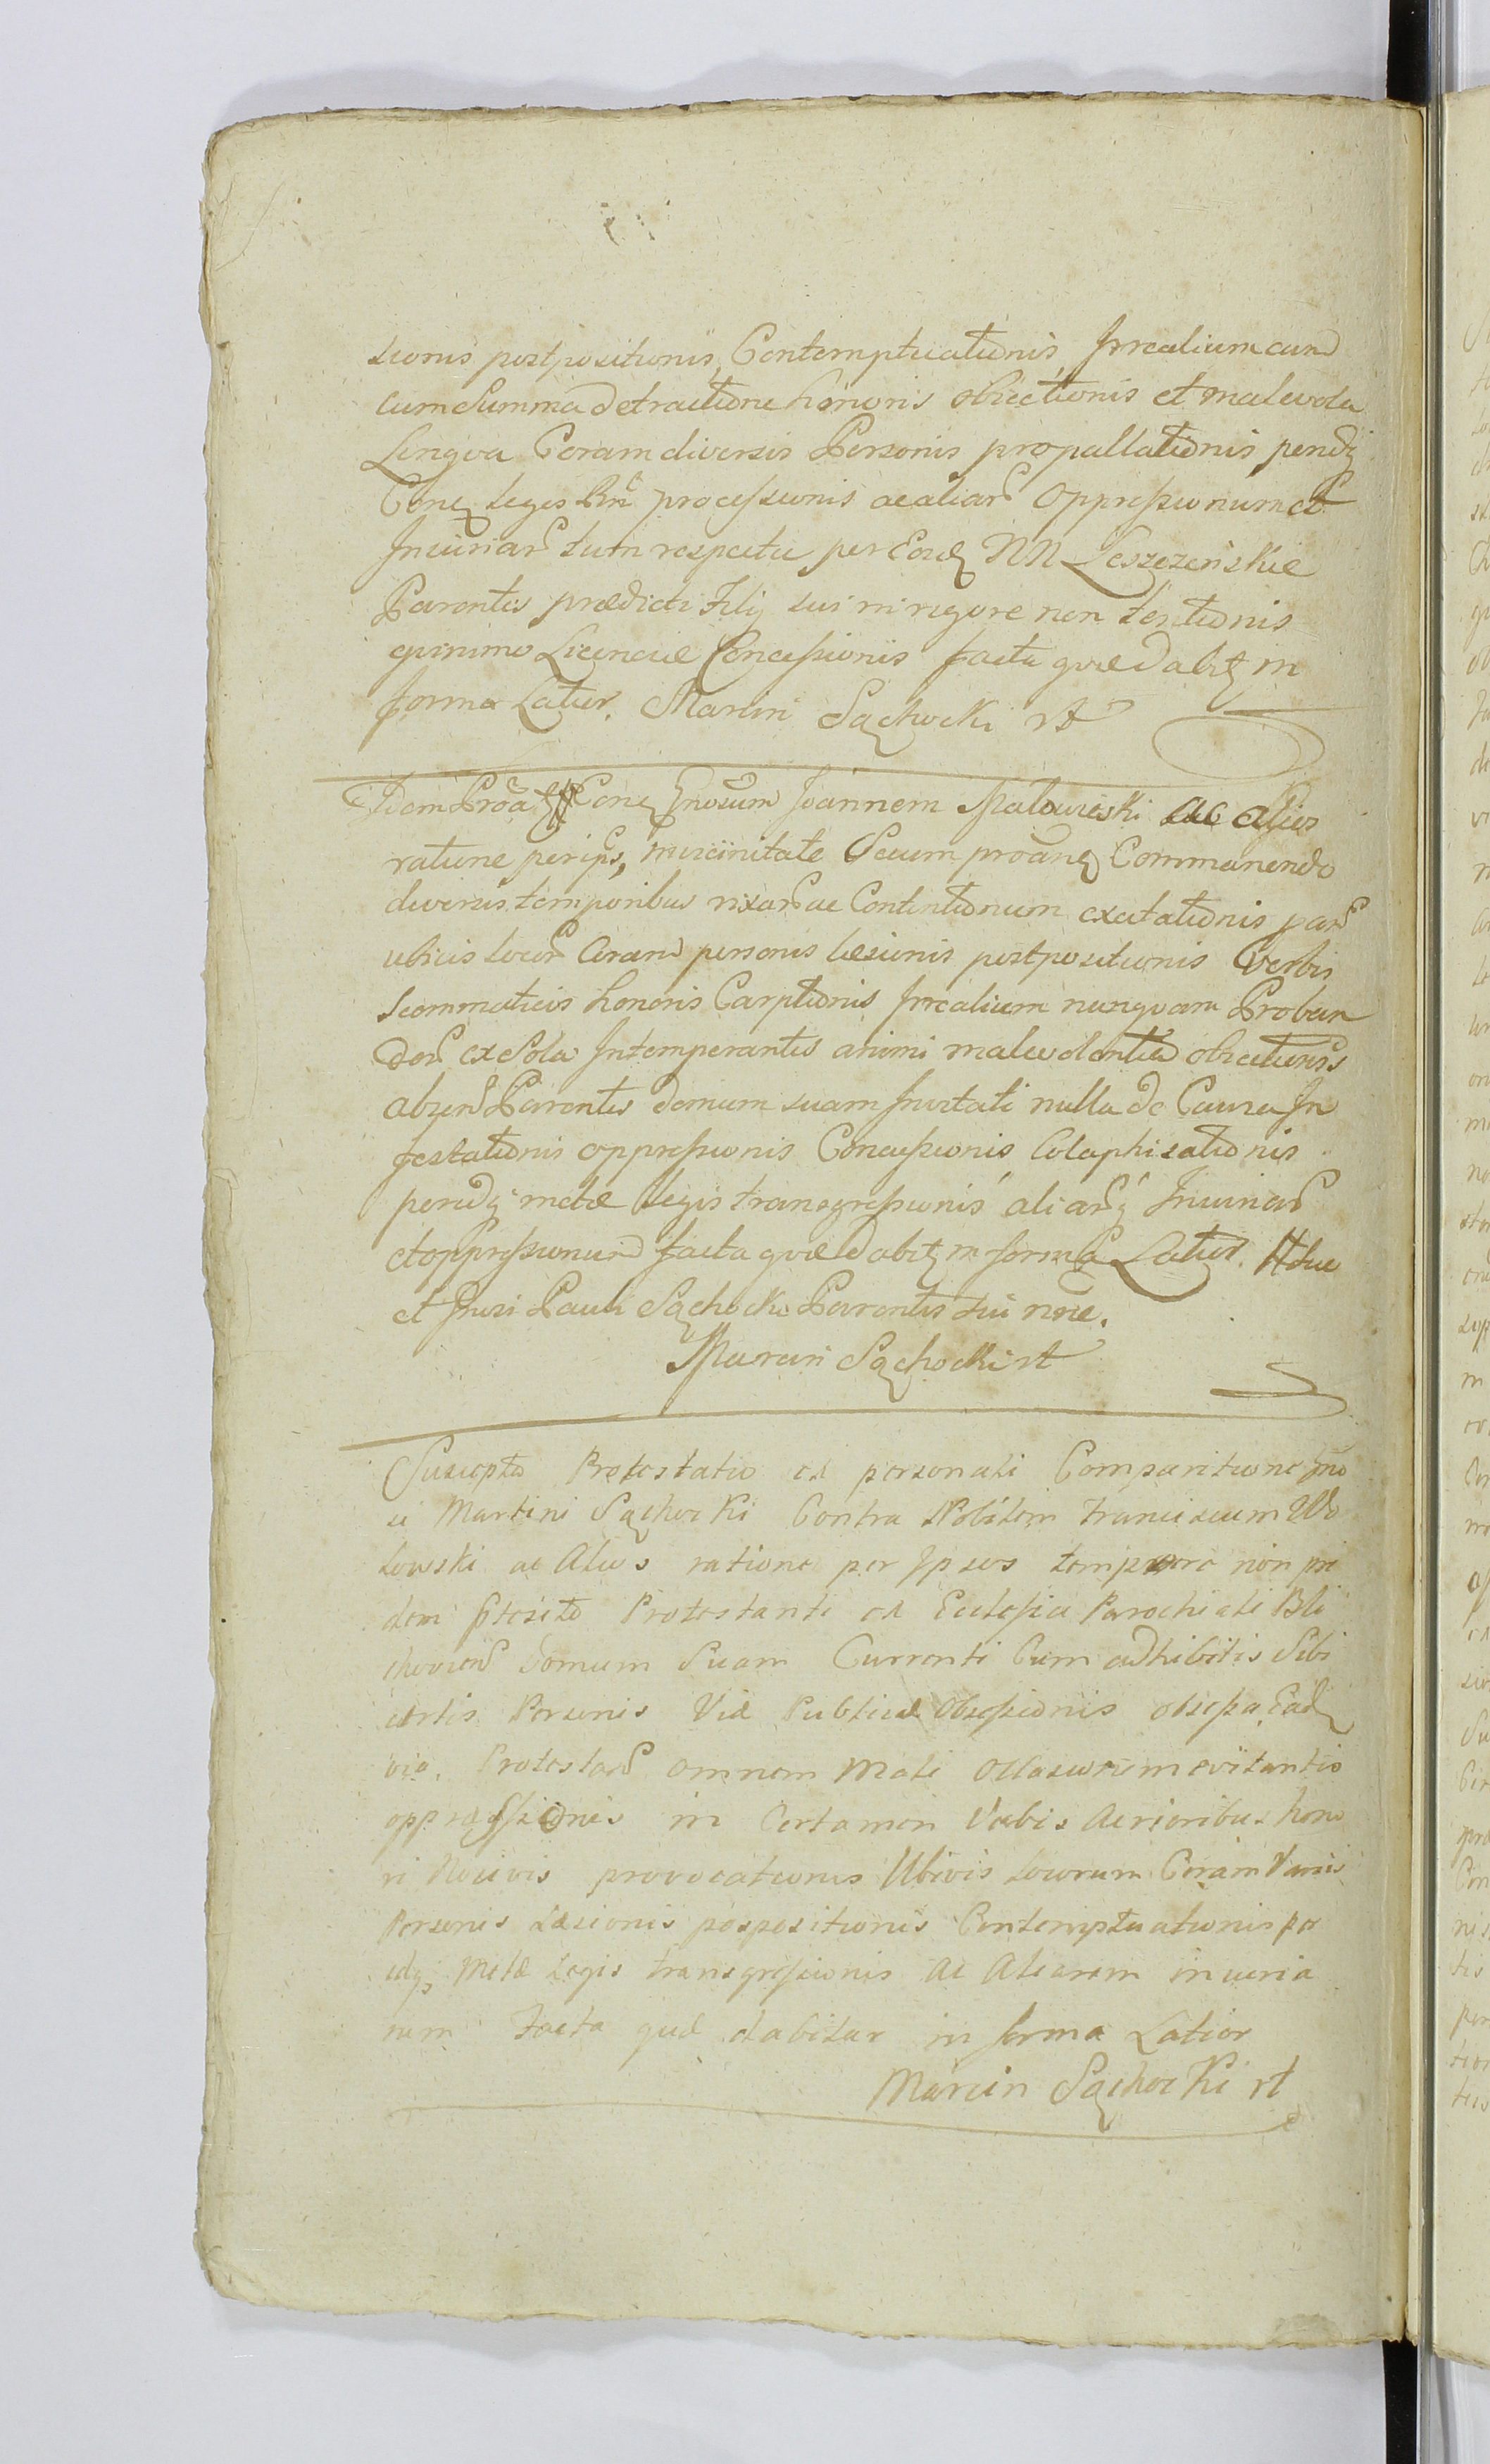 sionis postpositionis, Contemptuationis, Irrealium cum
cum Summa detractione honoris obiectionis et malevola
Lingva Coram diversis Personis propallationis pendq
Conq Leges procession​is ac aliar Oppressionum et
Iniuriar tum respectu per Eosdq NN Leszczenskie
Parentes prædicti Filij sui in rigore non tentionis
quinimo Licenciæ Concessionis facta quæ dabitq in
forma Latior. Marcin Sąchocki rt
Idem Proa Conq Gnosum Joannem Malowieski ac Alios
ratione per ips, in vicinitate Secum proanq Commanendo
diversis temporibus rixar ac Contentionum excitationis par
ubivis locor Coram personis læsionis postpositionis Verbis
Scommaticis honoris Carptionis Irrealium nunquam Proban
dor ex Sola Intemperantis animi malevolentia obiectionis
absen Parentis domum suam Invitati nulla de Causa In
festationis oppressionis Concussionis Colaphisationis
pendq metæ Legis transgressionis aliarq Iniuriar
et oppressionum facta quæ dabitq in forma Latior. suo
et Gnosi Pauli Sąchocki Parentis sui nne.
Marcin Sąchocki rt
Suscepta Protestatio ad personali Comparitione Gno
si Martini Sąchocki Contra Nobilem Franciscum Wo
lowski ac Alios ratione per Ipsos tempore non pri
dem Protestanti ex Ecclesia Parochiali Bli
choviens Domum Suam Currenti Cum adhibitis Sibi
certis Personis Viæ Publicæ Obsessionis obsessa Eadq
via, Protestan omnem Mali Occasionem evitantis
oppressionis in Certamen Verbis Acrioribus hono
ri Nocivis provocationis Ubivis Locorum Coram Variis
Personis Læsionis pospositionis Contemptuationis pe
Metæ Legis transgressionis Ac Aliarum iniuria
rum Facta quæ dabitur in forma Latior
Marcin Sąchocki rt